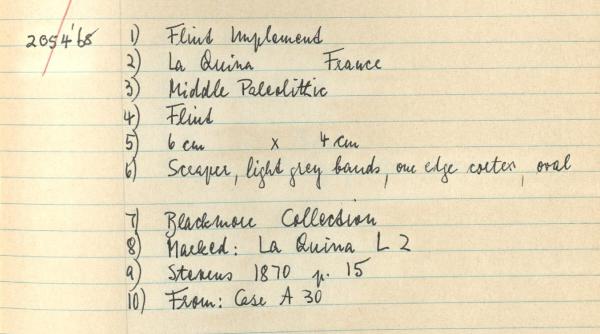 2054'68 1) Flint Implement
2) La Quina France
3) Middle Paleolithic
4) Flint
5) 6 cm x 4 cm
6) Scraper, light grey bands, one edge cortex, oval
7) Blackmore Collection
8) Marked: La Quina L 2
9) Stevens 1870 p. 15
10) From: Case A 30